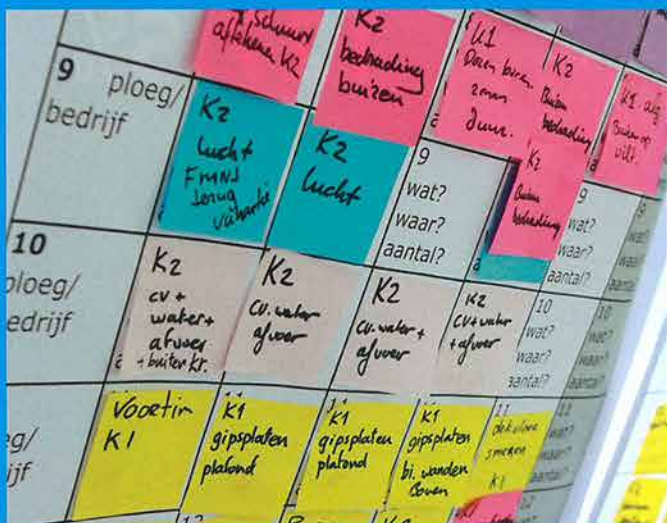 schuur
aftekenen K2
K2
bedrading
buizen
K1
Doen boven
2 man
K2
Buizen
bedrading
K1
9 ploeg/
bedrijf
K2
lucht
FRANS
terug
vakantie
K2
lucht
9
wat?
waar?
aantal?
K2
Buizen
bedrading
9
wat?
waar?
aantal?
10
ploeg/
edrijf
K2
CV +
water +
afvoer
+ buiten kr.
K2
CV. water
afvoer
K2
CV. water +
afvoer
K2
CV + water
+ afvoer
10
wat?
waar?
aantal?
10
eg/
ijf
Voortin
K1
K1
gipsplaten
plafond
K1
gipsplaten
plafond
K1
gipsplaten
bi. wanden
boven
11
smeren
K1
11
12